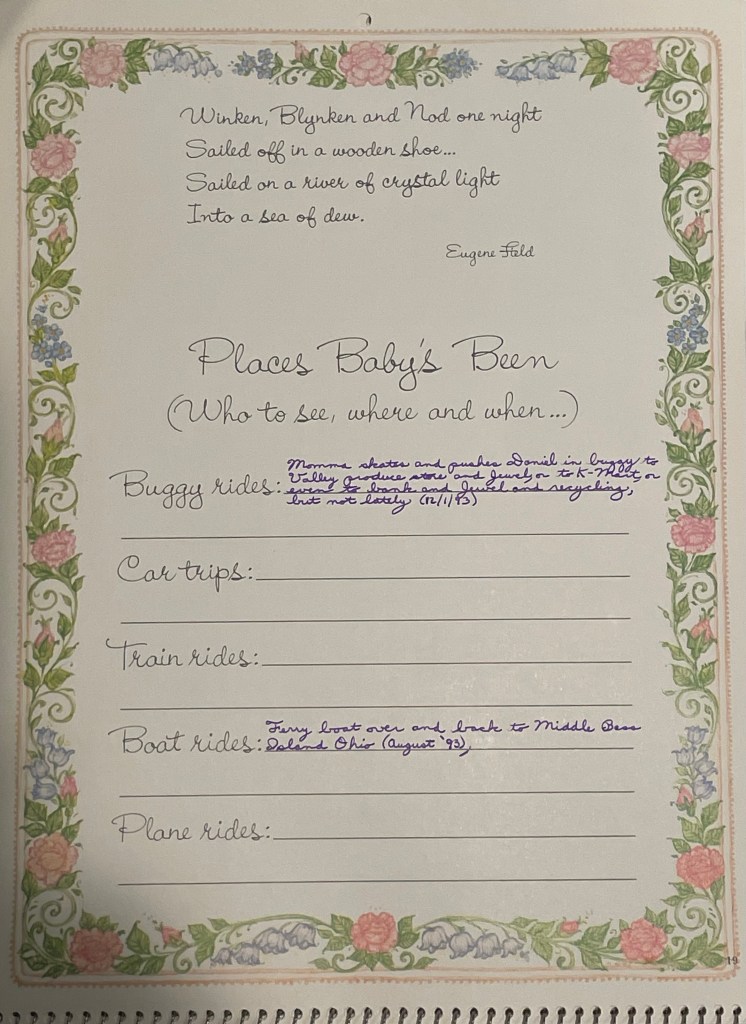 Winken, Blynken and Nod one night
Sailed off in a wooden shoe...
Sailed on a river of crystal light
Into a sea of dew.
Eugene Field
Places Baby's Been
(Who to see, where and when...)
Buggy rides: Momma skates and pushes Daniel in buggy to
Valley produce store and Jewel, or to K-Mart, or
even to bank and Jewel and recycling,
but not lately (12/1/93)
Car trips:
Train rides:
Boat rides: Ferry boat over and back to Middle Bass
Island Ohio (August '93),
Plane rides:
19